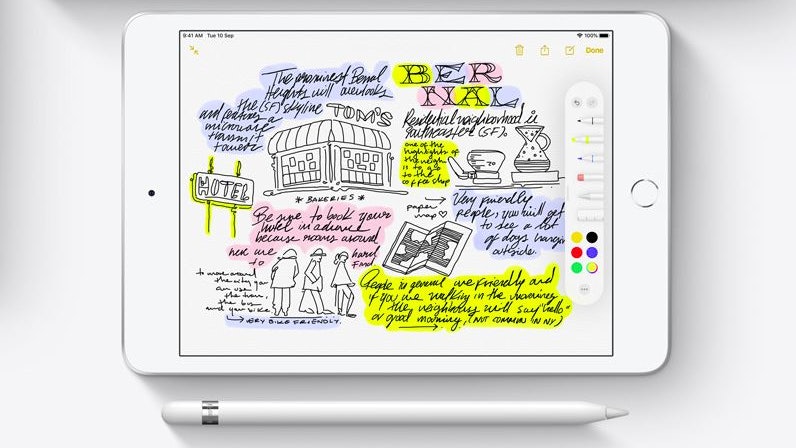 9:41 AM Tue 10 Sep
100%
Done
The prominest Bernal
Heights will overlooks
the (SF) skyline
and features a
microwave
transmit
tower
BER
NAL
TOM'S
Residential neighborhood is
southeastern (SF).
one of the
highlights of
the neigh
is to go
to the
coffee shop
HOTEL
* BAKERIES *
paper
map
Very friendly
people, you will get
to see a lot
of dogs hanging
outside.
Be sure to book your
hotel in advance
because rooms around
here are
to
hard
find
to move around
the city you
can use
the tram,
the bus
and your bike
VERY BIKE FRIENDLY.
People in general are friendly and
if you are walking in the mornings
the neighbors will say "hello"
or good morning, (NOT COMMON IN NY)